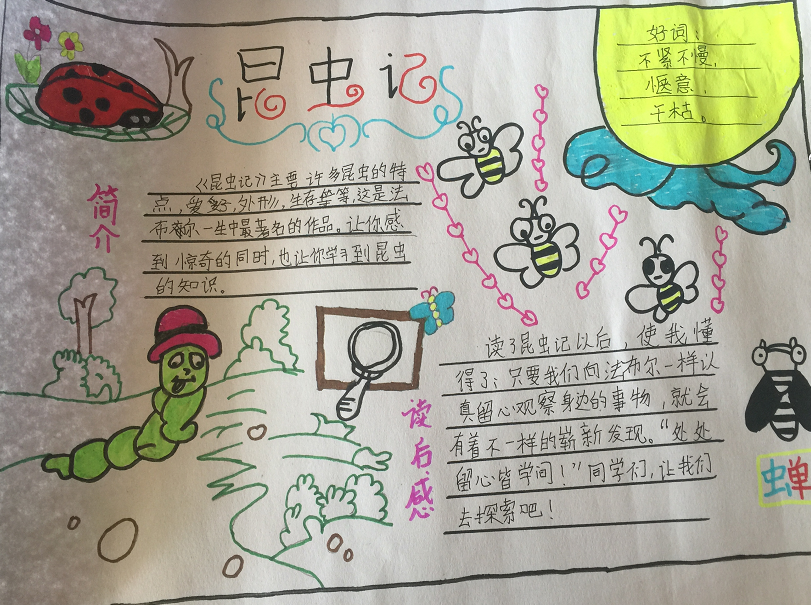 昆虫记
好词：
不紧不慢，
惬意，
干枯。
简介
《昆虫记》主要许多昆虫的特
点，爱好，外形，生存等等，这是法
布尔一生中最著名的作品。让你感
到惊奇的同时，也让你学习到昆虫
的知识。
读后感
读了昆虫记以后，使我懂
得了：只要我们向法布尔一样认
真留心观察身边的事物，就会
有着不一样的崭新发现。“处处
留心皆学问！”同学们，让我们
去探索吧！
蝉